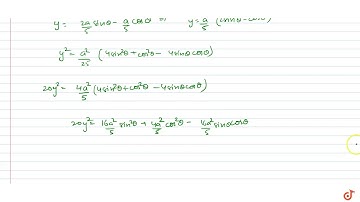 y = 2a/5 sinθ - a/5 cosθ y = a/5 (
y² = a²/25 (4sin²θ + cos²θ - 4sinθcosθ)
20y² = 4a²/5 (4sin²θ + cos²θ - 4sinθcosθ)
20y² = 16a²/5 sin²θ + 4a²/5 cos²θ - 16a²/5 sinθcosθ